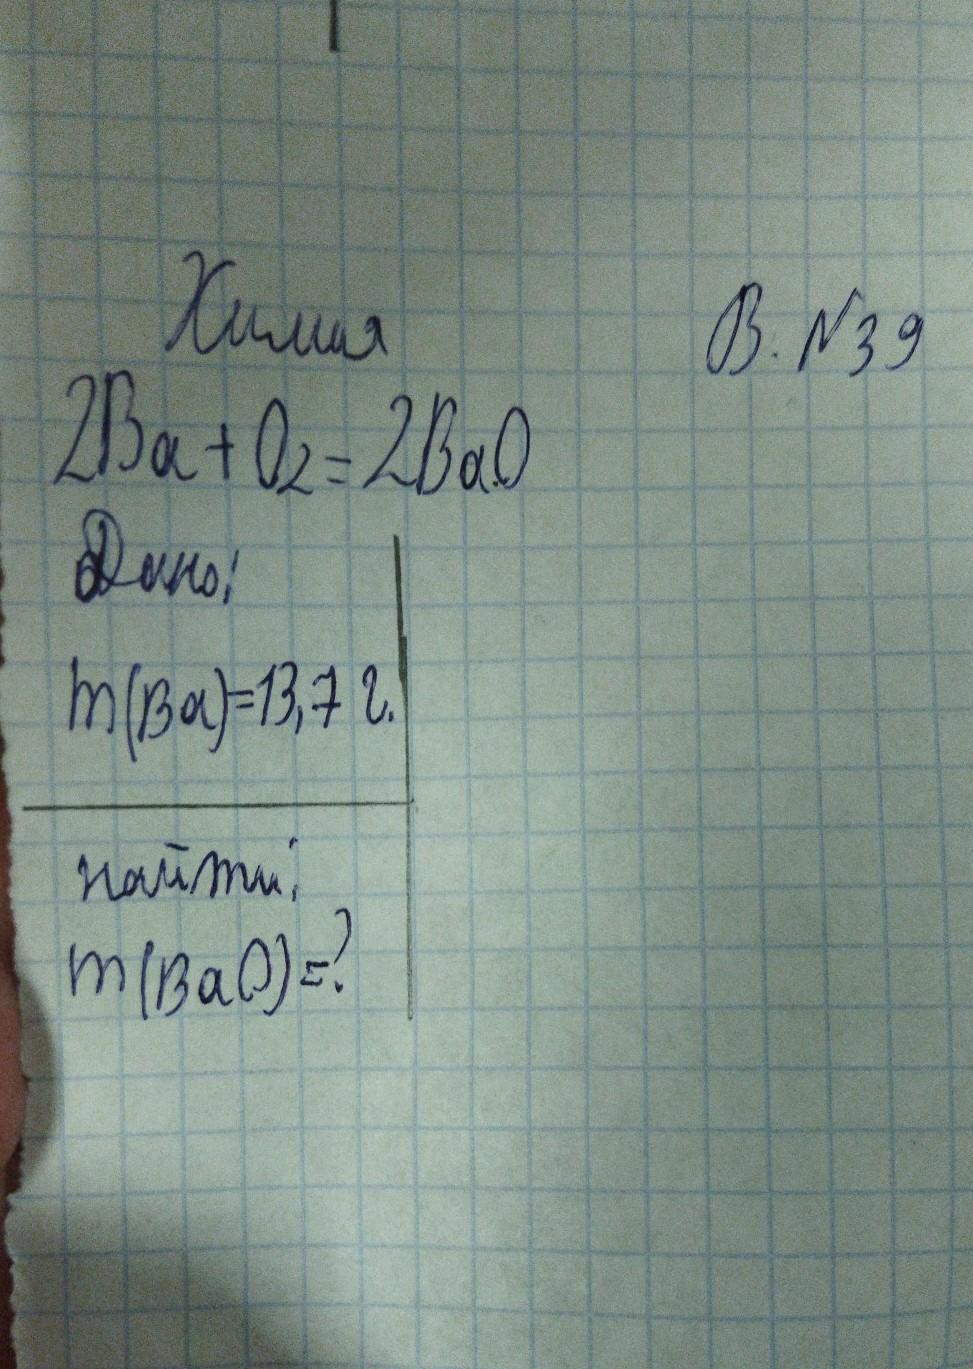 Химия
В. №39
2Ba+O₂=2BaO
Дано:
m(Ba)=13,7 г.
найти:
m(BaO)=?